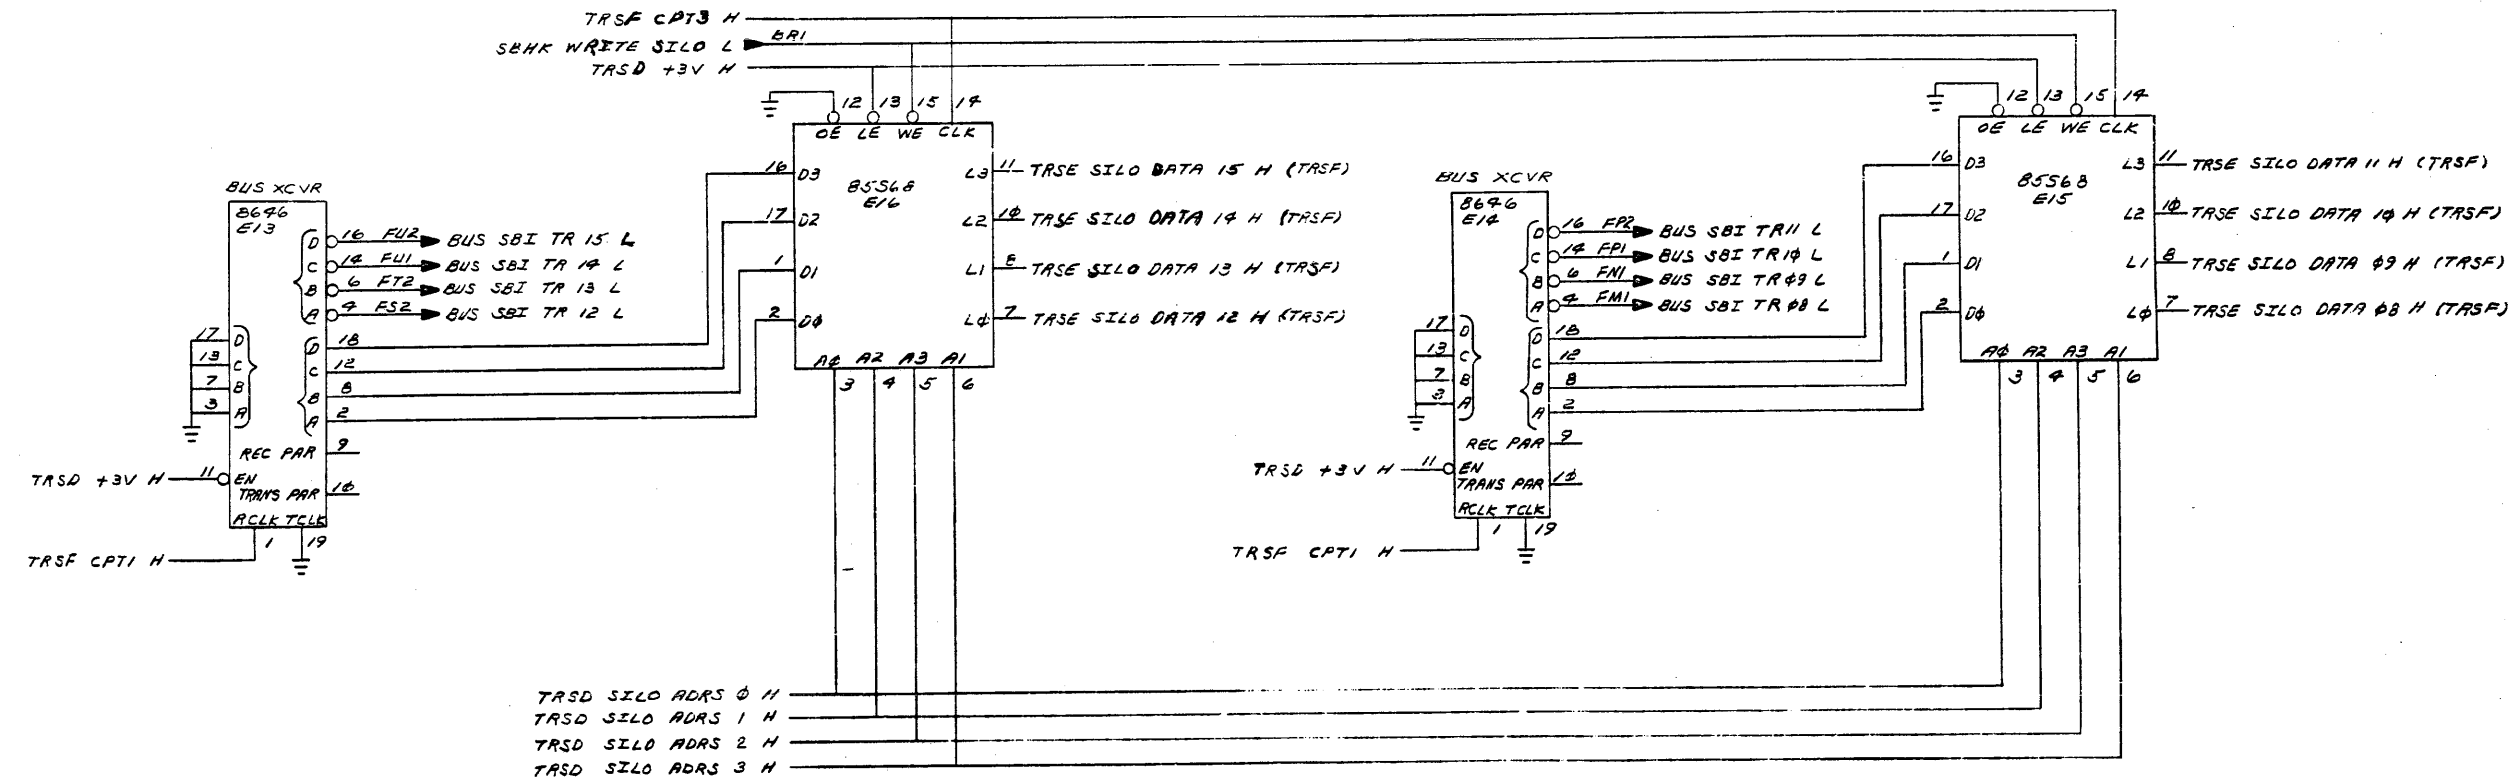 TRSF CPT3 H
SBHK WRITE SILO L BR1
TRSD +3V H
12 13 15 14
OE LE WE CLK
85S68
E16
16 D3
17 D2
1 D1
2 DØ
L3 11 TRSE SILO DATA 15 H (TRSF)
L2 1Ø TRSE SILO DATA 14 H (TRSF)
L1 8 TRSE SILO DATA 13 H (TRSF)
LØ 7 TRSE SILO DATA 12 H (TRSF)
AØ A2 A3 A1
3 4 5 6
BUS XCVR
8646
E13
D 16 FU2 BUS SBI TR 15 L
C 14 FU1 BUS SBI TR 14 L
B 6 FT2 BUS SBI TR 13 L
A 4 FS2 BUS SBI TR 12 L
17 D
13 C
7 B
3 A
D 18
C 12
B 8
A 2
REC PAR 9
TRSD +3V H 11 EN
TRANS PAR 1Ø
RCLK TCLK
1 19
TRSF CPT1 H
12 13 15 14
OE LE WE CLK
85S68
E15
16 D3
17 D2
1 D1
2 DØ
L3 11 TRSE SILO DATA 11 H (TRSF)
L2 1Ø TRSE SILO DATA 1Ø H (TRSF)
L1 8 TRSE SILO DATA Ø9 H (TRSF)
LØ 7 TRSE SILO DATA Ø8 H (TRSF)
AØ A2 A3 A1
3 4 5 6
BUS XCVR
8646
E14
D 16 FP2 BUS SBI TR11 L
C 14 FP1 BUS SBI TR1Ø L
B 6 FN1 BUS SBI TRØ9 L
A 4 FM1 BUS SBI TRØ8 L
17 D
13 C
7 B
3 A
D 18
C 12
B 8
A 2
REC PAR 9
TRSD +3V H 11 EN
TRANS PAR 1Ø
RCLK TCLK
1 19
TRSF CPT1 H
TRSD SILO ADRS Ø H
TRSD SILO ADRS 1 H
TRSD SILO ADRS 2 H
TRSD SILO ADRS 3 H